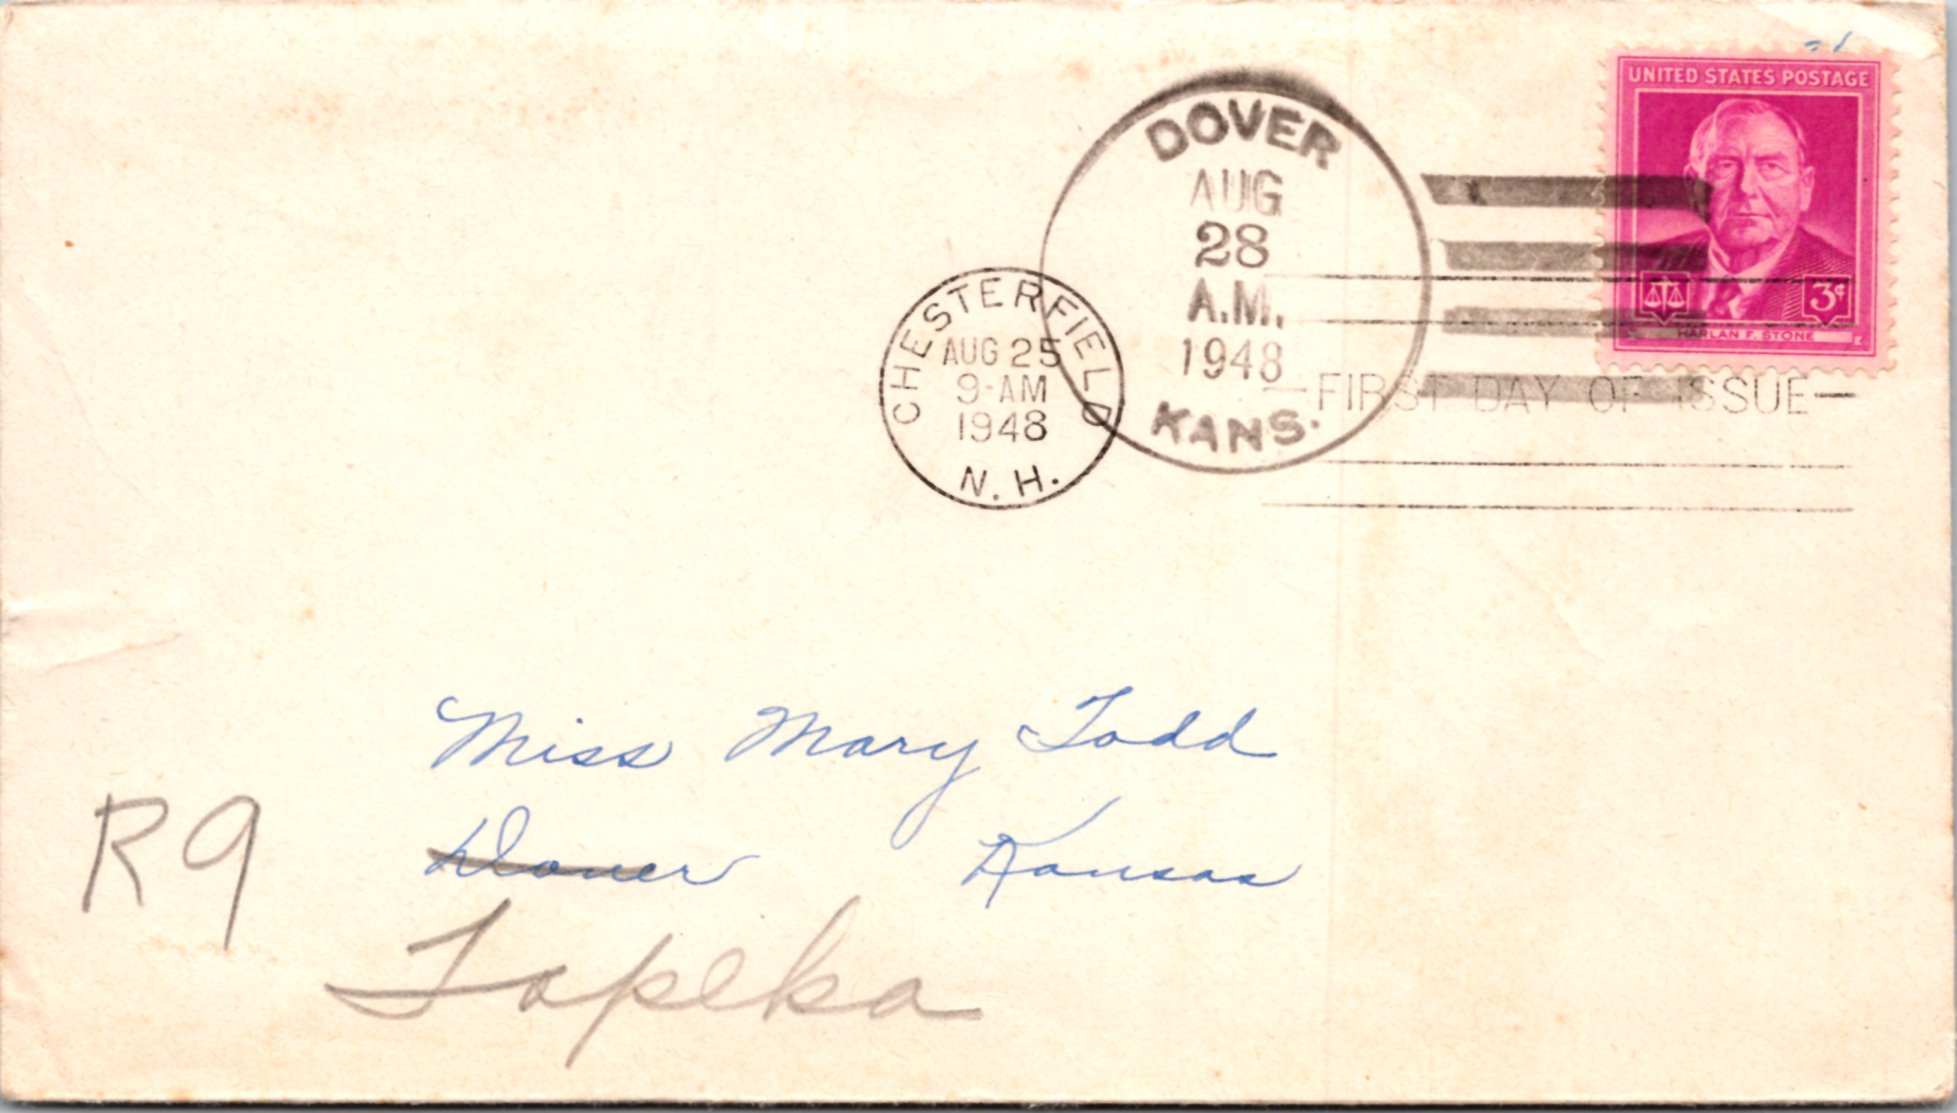 UNITED STATES POSTAGE
3¢
HARLAN F. STONE
DOVER
AUG
28
A.M.
1948
KANS.
CHESTERFIELD
AUG 25
9-AM
1948
N. H.
FIRST DAY OF ISSUE
Miss Mary Todd
Dover Kansas
R9
Topeka